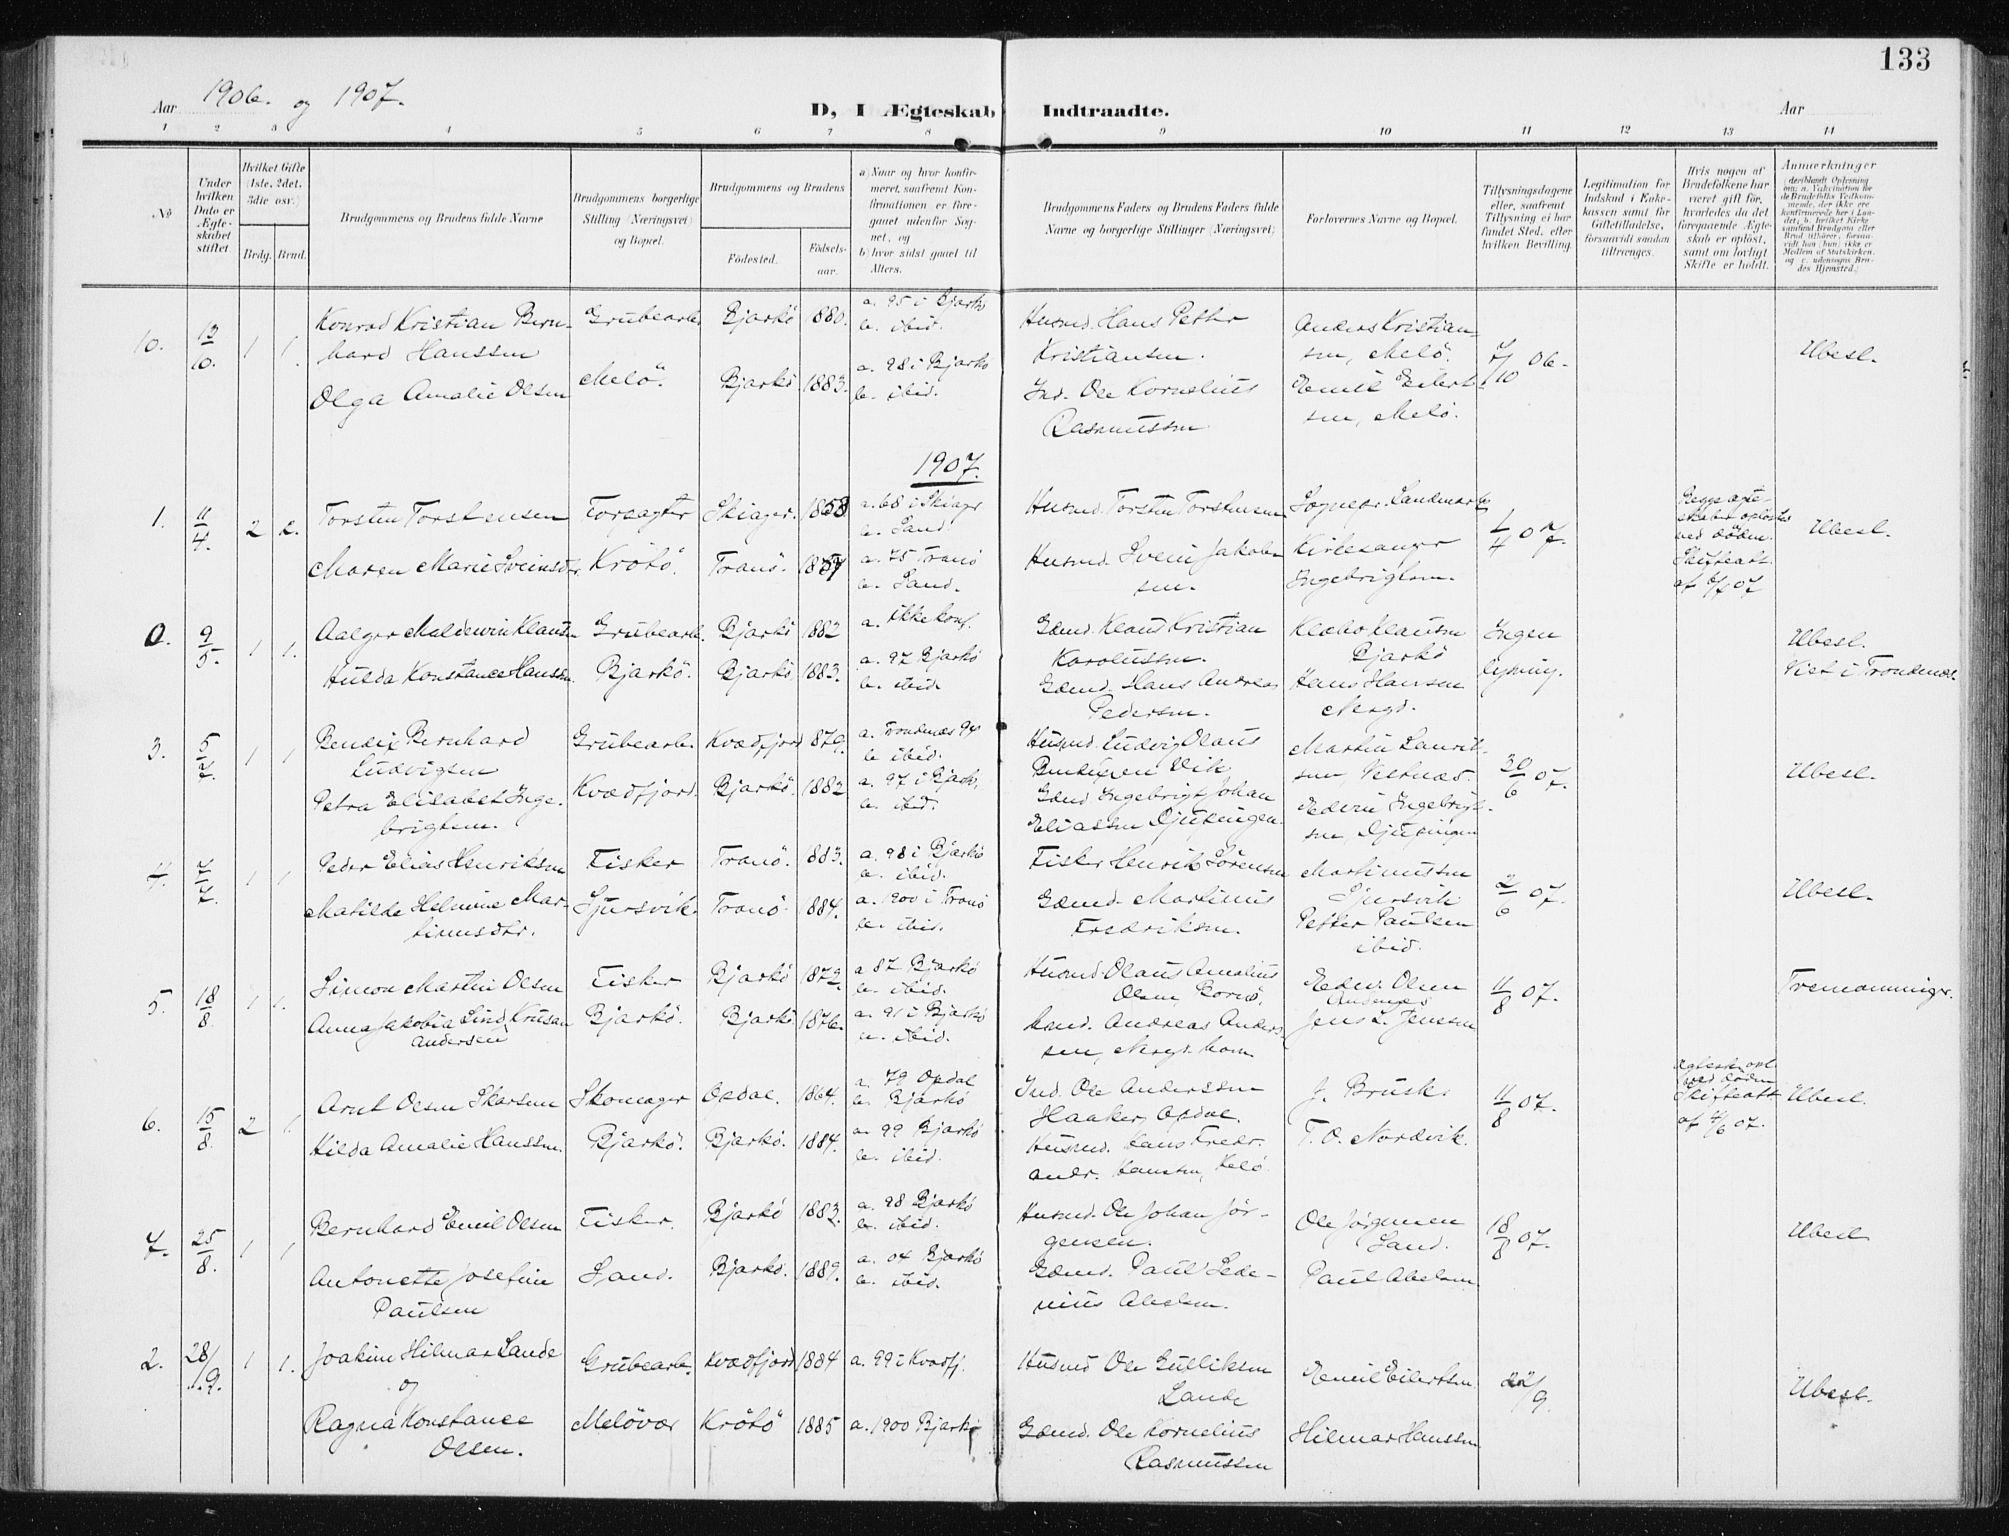 133
Aar 1906. og 1907.
D, I Ægteskab Indtraadte.
Aar
1 2 3 4 5 6 7 8 9 10 11 12 13 14
No
Under hvilken Dato er Ægteskabet stiftet.
Hvilket Gifte (1ste, 2det, 3die osv.)
Brdg. Brud.
Brudgommens og Brudens fulde Navne
Brudgommens borgerlige Stilling (Næringsvei) og Bopæl.
Brudgommens og Brudens
Födested.
Födsels-aar.
a) Naar og hvor konfirmeret, saafremt Konfirmationen er foregaaet udenfor Sognet, og
b) hvor sidst gaaet til Alters.
Brudgommens Faders og Brudens Faders fulde Navne og borgerlige Stillinger (Næringsvei)
Forlovernes Navne og Bopæl.
Tillysningsdagene eller, saafremt Tillysning ei har fundet Sted, efter hvilken Bevilling.
Legitimation for Indskud i Enkekassen samt for Giftetilladelse, forsaavidt saadan tiltrænges.
Hvis nogen af Brudefolkene har været gift før, hvorledes da det foregaaende Ægteskab er opløst, samt om lovligt Skifte er holdt.
Anmerkninger
10. 13/10. 1 1.
Konrad Kristian Bern-
hard Hanssen
Grubearb. Bjarkö 1880. a. 95 i Bjarkö
b. ibid.
Husmd. Hans Petter
Kristiansen.
Anders Kristian-
sen, Melö.
7/10 06.
Ubesl.
Olga Amalie Olsen
Melö. Bjarkö 1883. a. 98 i Bjarkö
b. ibid.
Ind. Ole Kornelius
Rasmussen
Emil Eilert-
sen, Melö.
1907.
1. 11/4. 2 2.
Torsten Torstensen
Forpagter Skiager. 1853 a. 68 i Skiager
b. Sand
Husmd. Torsten Torstensen
Sognepr. Landmark
1/4 07.
Begge ægte-
skaber opløst
ved døden.
Skifteatt.
Ubesl.
Maren Marie Sveinsdtr.
Krötö. Tranö. a. 75 Tranö
b. Sand.
Husmd. Svein Jakob-
sen.
Kirkesanger
Ingebrigtsen.
0. 9/5. 1 1.
Aalger Maldewin Klausen
Grubearb. Bjarkö 1882 a. ikke konf.
Gaard. Klaus Kristian
Karolussen.
Klaus Klausen
Bjarkö
Ingen
lysning.
Ubesl.
Viet i Trondenæs.
Hulda Konstance Hanssen.
Bjarkö. Bjarkö. 1883. a. 97 Bjarkö
b. ibid.
Gaard. Hans Andreas
Pedersen.
Hans Hansen
3. 5/7. 1 1
Bendix Bernhard
Ludvigsen
Grubearb. Kvædfjord 1879. a. Trondenæs 94
b. ibid.
Husmd. Ludvig Olaus
Bendixen Vik
Martin Laurit-
sen,
30/6 07.
Ubesl.
Petra Elisabet Inge-
brigtsen.
Kvædfjord. Bjarkö. 1882 a. 97 i Bjark.
b. ibid.
Gaard Ingebrigt Johan
Eliassen Djupingen
Edvin Ingebrigt-
sen, Djupingen
4. 7/7. 1 1
Peder Elias Henriksen
Fisker Tranö. 1883. a. 98 i Bjarkö
b. ibid.
Fisker Henrik Sörensen
Martinussen
Gjersvik
2/6 07.
Ubesl.
Matilde Helmine Mar-
tinusdtr.
Gjersvik. Tranö. 1884. a. 1900 i Tranö
b. ibid.
Gaard. Martinus
Fredriksen.
Petter Paulsen
ibid.
5. 18/8. 1 1.
Simon Martin Olsen
Fisker Bjarkö 1872. a 87 Bjarkö
b. ibid.
Husmd. Olaus Amalius
Olsen
Edev. Olsen
11/8 07.
Tremænninger.
Anna Jakobia Lind
Andersen
Bjarkö. Bjarkö 1876. a. 91 i Bjarkö
b. ibid.
Andreas Anders-
sen,
Jens L. Jenssen
6. 15/8. 2 1.
Arnt Olsen Skarsem
Skomager Opdal. 1864. a. 79 Opdal
b. Bjarkö
Ind. Ole Anderssen
Haaker, Opdal.
J. Brusk.
11/8 07.
ved døden
Skifteatt.
af 4/6 07.
Ubesl.
Hilda Amalie Hanssen.
Bjarkö. Bjarkö. 1884. a. 99 Bjarkö
b. ibid.
Husmd. Hans Fredr.
Andr. Hanssen, Melö.
T. O. Nordvik.
7. 25/8. 1 1
Bernhard Emil Olsen
Fisker. Bjarkö 1883. a. 98 Bjarkö
b. ibid.
Husmd. Ole Johan Jör-
gensen.
Ole Jörgensen
Sand.
18/8 07.
Ubesl
Antonette Josefine
Paulsen
Sand. Bjarkö. 1889. a. 04 Bjarkö
b. ibid.
Gaard. Paul Zede-
nius Abelsen.
Paul Abelsen
2. 28/9. 1 1.
Joakim Hilmar Lande
og
Grubearb. Kvædfjord 1884 a. 99 i Kvædfj.
Husmd Ole Gulliksen
Lande
Emil Eilertsen
22/9.
Ubesl.
Ragna Konstance
Olsen.
Melövær Krötö 1885 a. 1900 Bjarkö
Gaard. Ole Kornelius
Rasmussen
Hilmar Hanssen